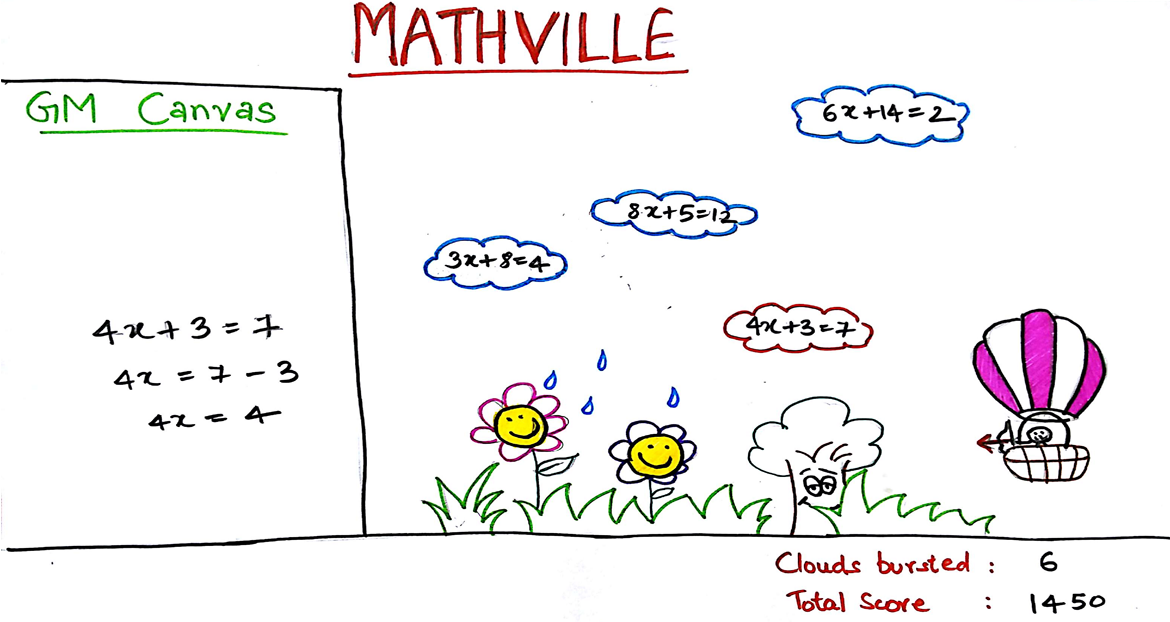 MATHVILLE
GM Canvas
4x + 3 = 7
4x = 7 - 3
4x = 4
6x+14=2
8x+5=12
3x+8=4
4x+3=7
Clouds bursted : 6
Total Score : 1450